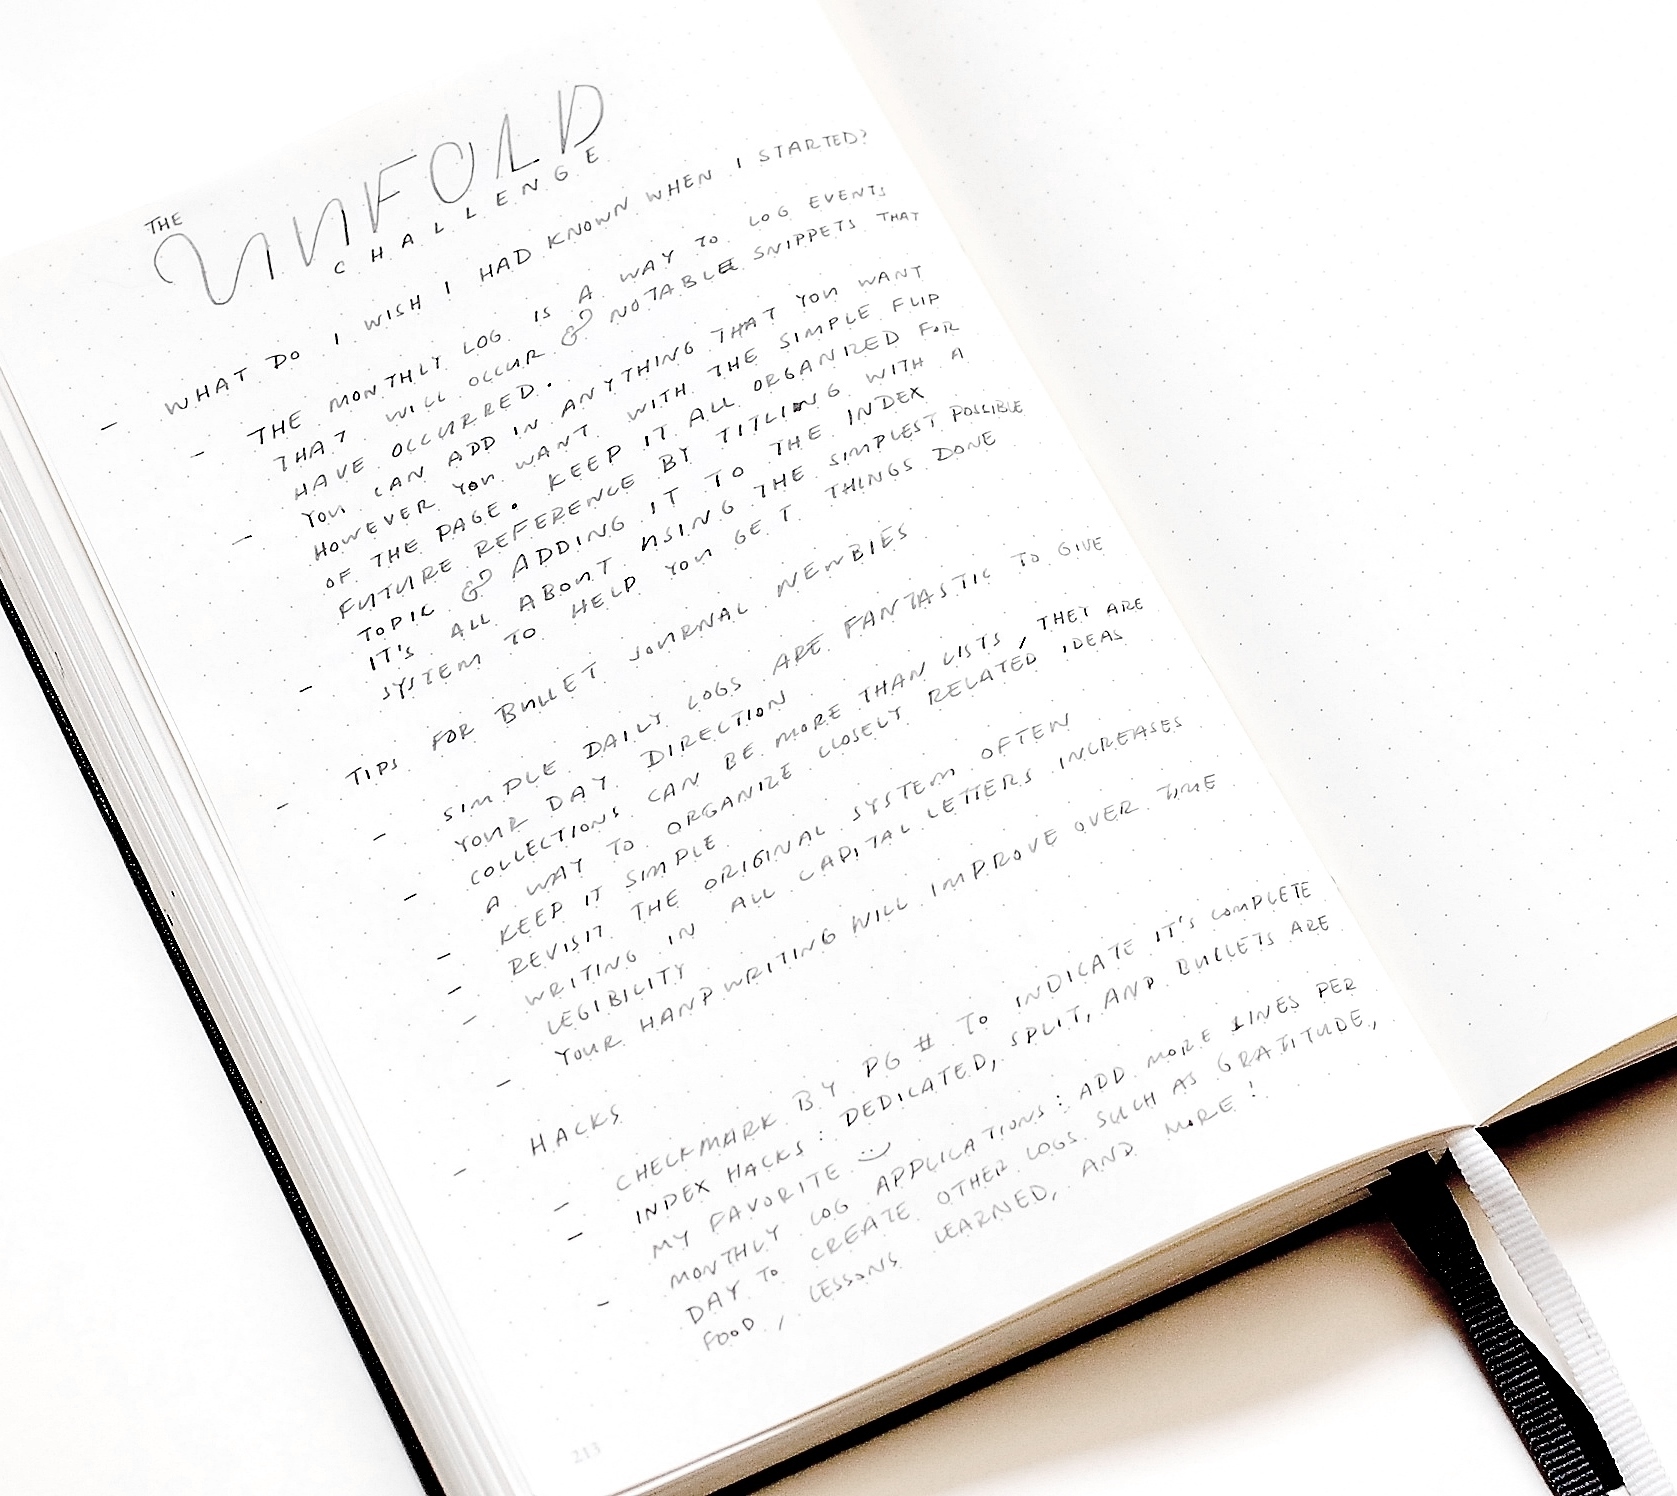 THE
UNFOLD
CHALLENGE
- WHAT DO I WISH I HAD KNOWN WHEN I STARTED?
- THE MONTHLY LOG IS A WAY TO LOG EVENTS
THAT WILL OCCUR & NOTABLE SNIPPETS THAT
HAVE OCCURRED.
- YOU CAN ADD IN ANYTHING THAT YOU WANT
HOWEVER YOU WANT WITH THE SIMPLE FLIP
OF THE PAGE. KEEP IT ALL ORGANIZED FOR
FUTURE REFERENCE BY TITLING WITH A
TOPIC & ADDING IT TO THE INDEX
- IT'S ALL ABOUT USING THE SIMPLEST POSSIBLE
SYSTEM TO HELP YOU GET THINGS DONE
- TIPS FOR BULLET JOURNAL NEWBIES
- SIMPLE DAILY LOGS ARE FANTASTIC TO GIVE
YOUR DAY DIRECTION
- COLLECTIONS CAN BE MORE THAN LISTS, THEY ARE
A WAY TO ORGANIZE CLOSELY RELATED IDEAS
- KEEP IT SIMPLE
- REVISIT THE ORIGINAL SYSTEM OFTEN
- WRITING IN ALL CAPITAL LETTERS INCREASES
LEGIBILITY
- YOUR HANDWRITING WILL IMPROVE OVER TIME
- HACKS
- CHECKMARK BY PG # TO INDICATE IT'S COMPLETE
- INDEX HACKS: DEDICATED, SPLIT, AND BULLETS ARE
MY FAVORITE :)
- MONTHLY LOG APPLICATIONS: ADD MORE LINES PER
DAY TO CREATE OTHER LOGS SUCH AS GRATITUDE,
FOOD, LESSONS LEARNED, AND MORE!
213